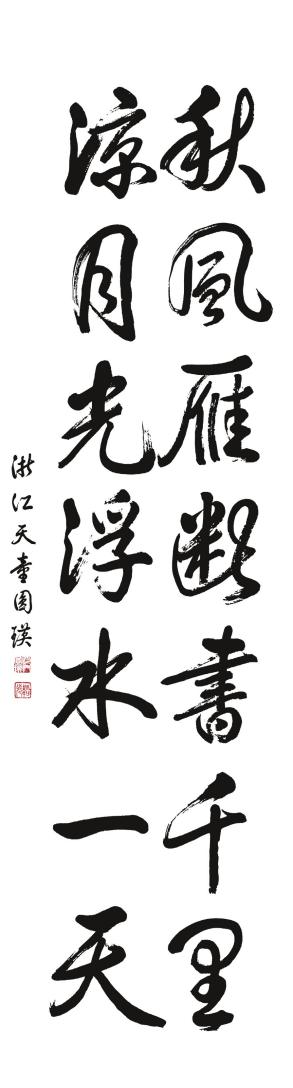 秋風雁断書千里
涼月光浮水一天
浙江天童圓瑛